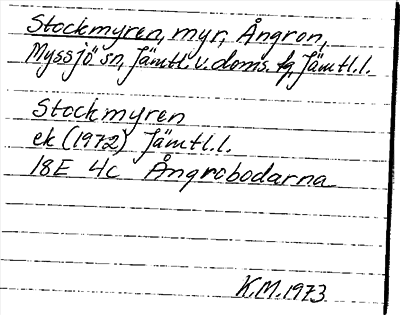 Stockmyren, myr, Ångron,
Myssjö sn, Jämtl. v. doms. tg, Jämtl. l.
Stockmyren
ek (1972) Jämtl. l.
18E 4c Ångrobodarna
K.M. 1973